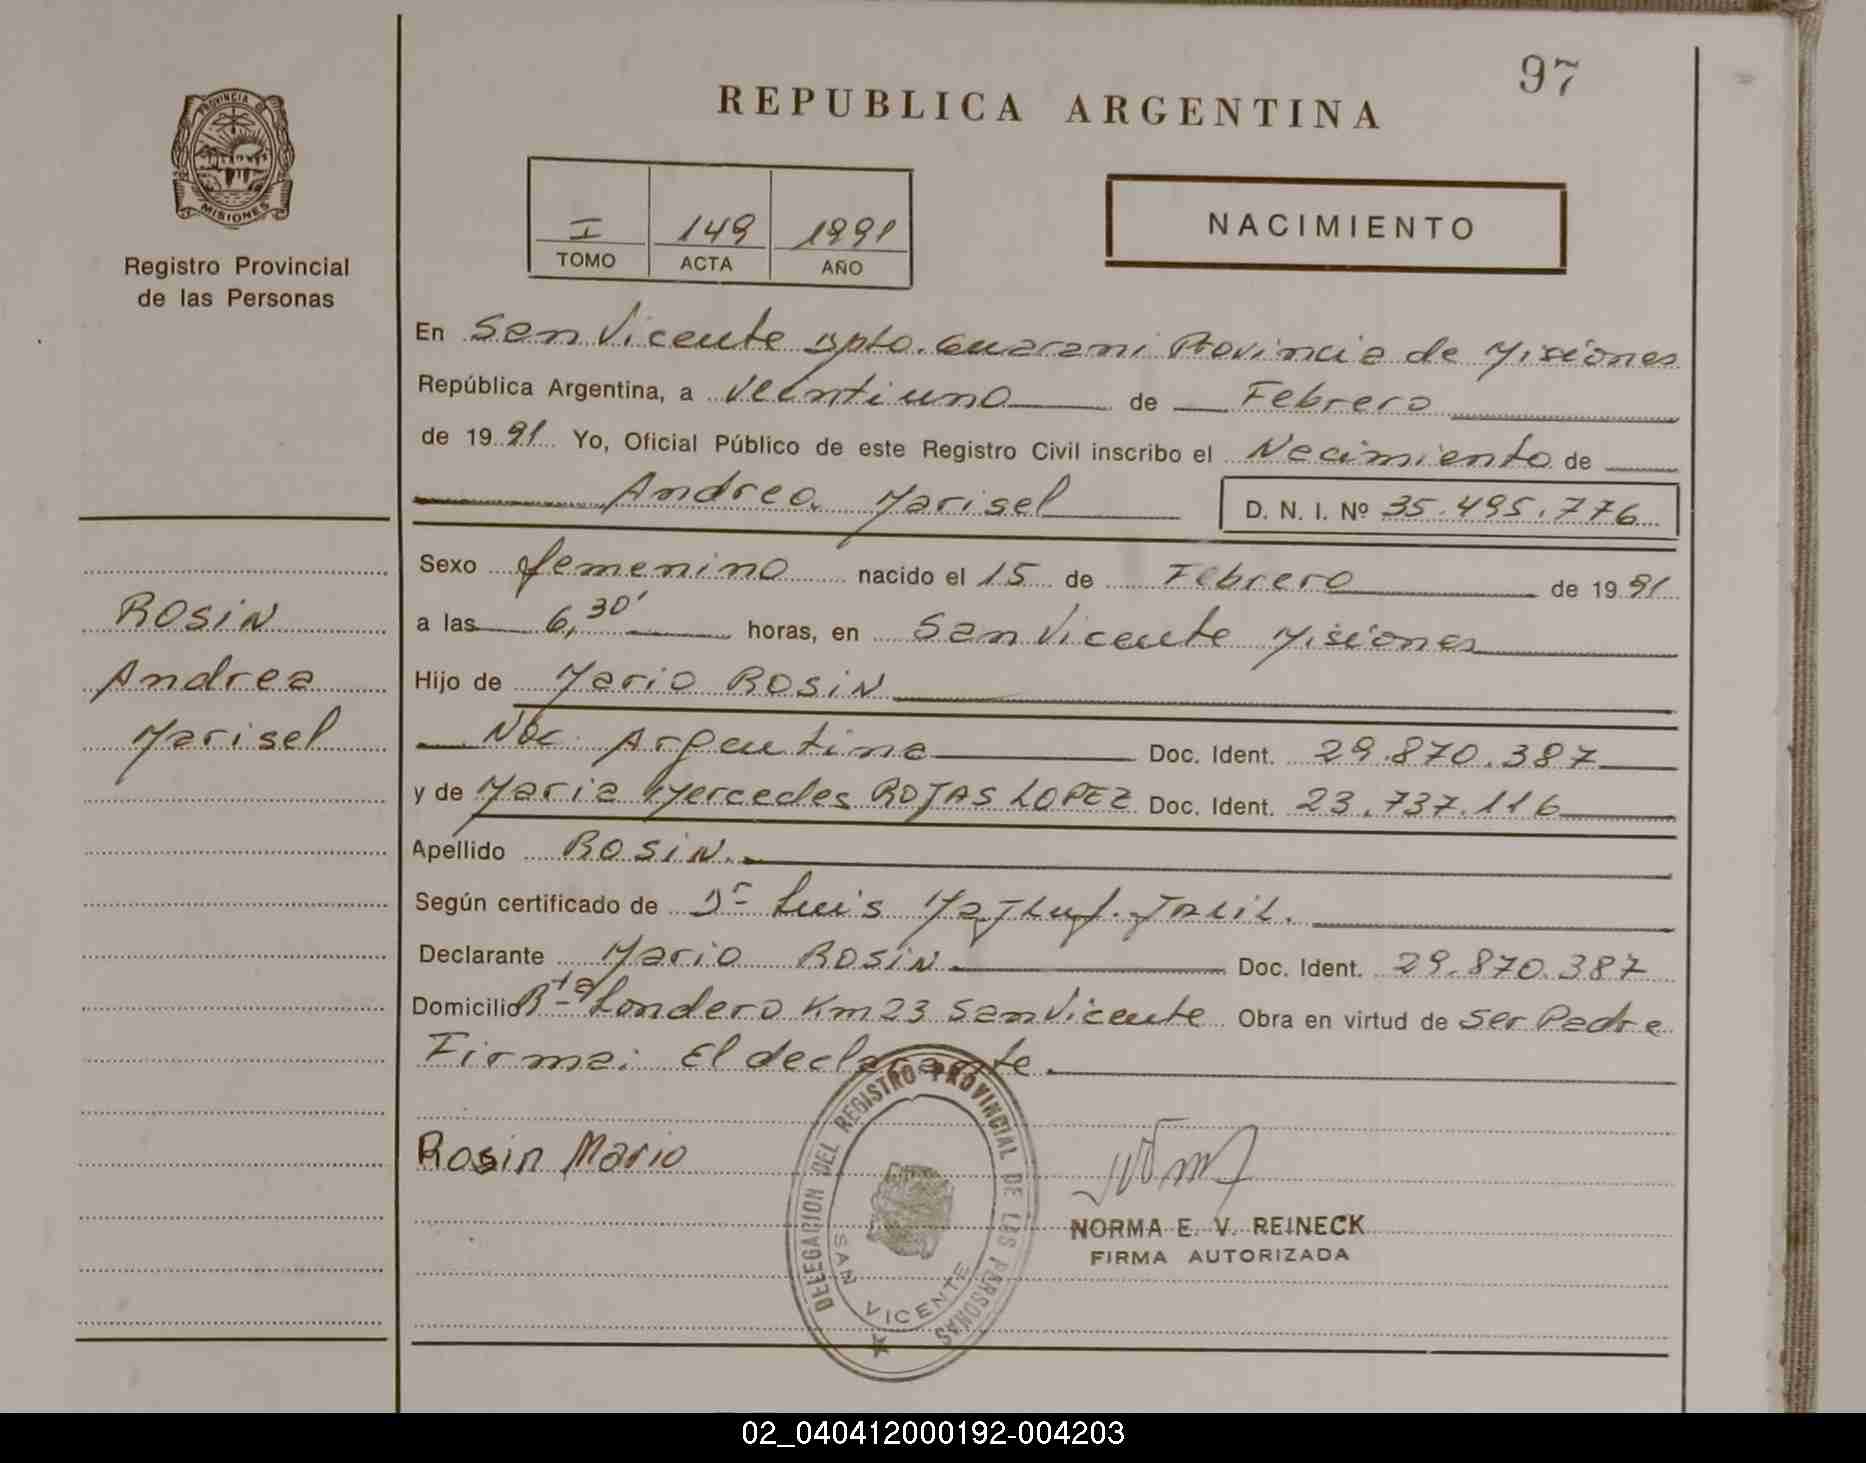 97
REPUBLICA ARGENTINA
PROVINCIA DE
MISIONES
Registro Provincial
de las Personas
I 149 1991
TOMO ACTA AÑO
NACIMIENTO
En San Vicente Dpto. Guarani Provincia de Misiones
República Argentina, a Veintiuno de Febrero
de 1991 Yo, Oficial Público de este Registro Civil inscribo el Nacimiento de
Andrea Marisel D. N. I. Nº 35.495.776
Sexo femenino nacido el 15 de Febrero de 1991
a las 6,30' horas, en San Vicente Misiones
Hijo de Mario ROSIN
Nac. Argentina Doc. Ident. 29.870.387
y de Maria Mercedes ROJAS LOPEZ Doc. Ident. 23.737.116
Apellido ROSIN.
Según certificado de Dr Luis
Declarante Mario ROSIN Doc. Ident. 29.870.387
Domicilio Bta Londero Km 23 San Vicente Obra en virtud de Ser Padre
Firma: El declarante.
Rosin Mario
NORMA E. V. REINECK
FIRMA AUTORIZADA
DELEGACION DEL REGISTRO PROVINCIAL DE LAS PERSONAS
SAN VICENTE
ROSIN
Andrea
Marisel
02_040412000192-004203